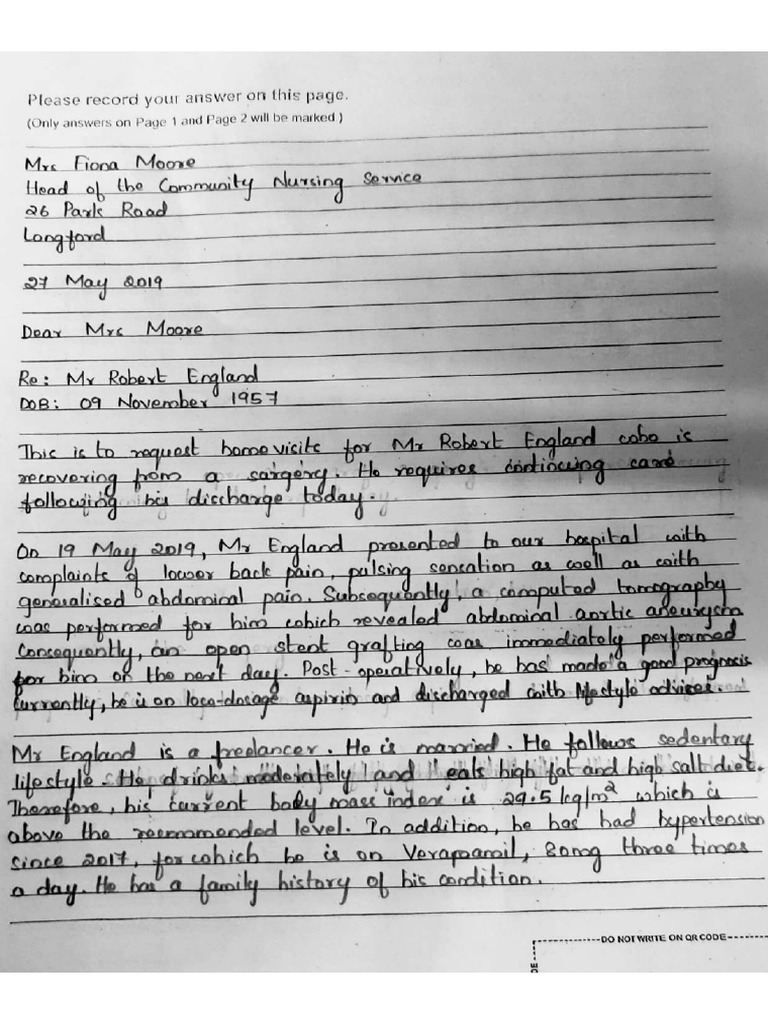 Please record your answer on this page.
(Only answers on Page 1 and Page 2 will be marked.)
Mrs Fiona Moore
Head of the Community Nursing Service
26 Park Road
Longford
27 May 2019
Dear Mrs Moore
Re: Mr Robert England
DOB: 09 November 1957
This is to request home visits for Mr Robert England who is
recovering from a surgery. He requires continuing care
following his discharge today.
On 19 May 2019, Mr England presented to our hospital with
complaints of lower back pain, pulsing sensation as well as with
generalised abdominal pain. Subsequently, a computed tomography
was performed for him which revealed abdominal aortic aneurysm
Consequently, an open stent grafting was immediately performed
for him on the next day. Post-operatively, he has made a good prognosis
Currently, he is on low-dosage aspirin and discharged with lifestyle advises.
Mr England is a freelancer. He is married. He follows sedentary
lifestyle. He drinks moderately and eats high fat and high salt diet.
Therefore, his current body mass index is 29.5 kg/m² which is
above the recommended level. In addition, he has had hypertension
since 2017, for which he is on Verapamil, 80mg three times
a day. He has a family history of his condition.
DO NOT WRITE ON QR CODE